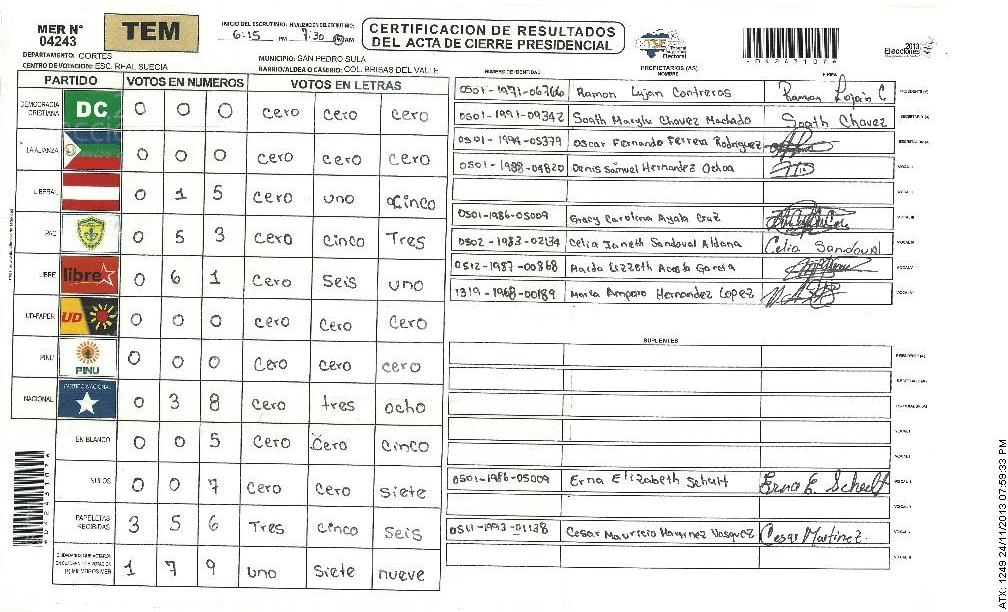 MER N°
04243
TEM
INICIO DEL ESCRUTINIO: FINALIZACION DEL ESCRUTINIO:
6:15 PM 7:30 AM
CERTIFICACION DE RESULTADOS
DEL ACTA DE CIERRE PRESIDENCIAL
TSE Tribunal Supremo Electoral
042431076
Elecciones 2013
DEPARTAMENTO: CORTES
CENTRO DE VOTACION: ESC. REAL SUECIA
MUNICIPIO: SAN PEDRO SULA
BARRIO/ALDEA O CASERIO: COL. BRISAS DEL VALLE
PARTIDO VOTOS EN NUMEROS VOTOS EN LETRAS
DEMOCRACIA CRISTIANA DC 0 0 0 cero cero cero
LA ALIANZA 0 0 0 cero cero cero
LIBERAL 0 1 5 cero uno cinco
PAC 0 5 3 cero cinco Tres
LIBRE libre 0 6 1 Cero seis uno
UD-FAPER UD 0 0 0 cero cero cero
PINU PINU 0 0 0 cero cero cero
NACIONAL PARTIDO NACIONAL 0 3 8 cero tres ocho
EN BLANCO 0 0 5 Cero Cero cinco
NULOS 0 0 7 cero cero siete
PAPELETAS RECIBIDAS 3 5 6 Tres cinco seis
1 7 9 uno siete nueve
NUMERO DE IDENTIDAD PROPIETARIOS (AS) NOMBRE FIRMA
0501-1971-06766 Ramon Lujan Contreras Ramon Lojan C PRESIDENTE (A)
0501-1991-09342 Soath Marylu Chavez Machado Soath Chavez SECRETARIA (A)
0501-1994-05379 Oscar Fernando Ferrera Rodriguez ESCRUTADOR (A)
0501-1988-04820 Denis Samuel Hernandez Ochoa VOCAL I
0501-1986-05009 Gracy Carolina Ayala Cruz VOCAL III
0502-1983-02134 Celia Janeth Sandoval Aldana Celia Sandoval VOCAL IV
0512-1987-00868 Lizzeth Acosta Garcia VOCAL V
1319-1968-00189 Maria Amparo Hernandez Lopez VOCAL VI
SUPLENTES
PRESIDENTE (A)
SECRETARIA (A)
ESCRUTADOR (A)
VOCAL I
0501-1986-05009 Erna Elizabeth Schutt Erna E. Schutt
0511-1993-01138 Cesar Mauricio Martinez Vasquez Cesar Martinez.
ATX: 1249 24/11/2013 07:59:33 PM